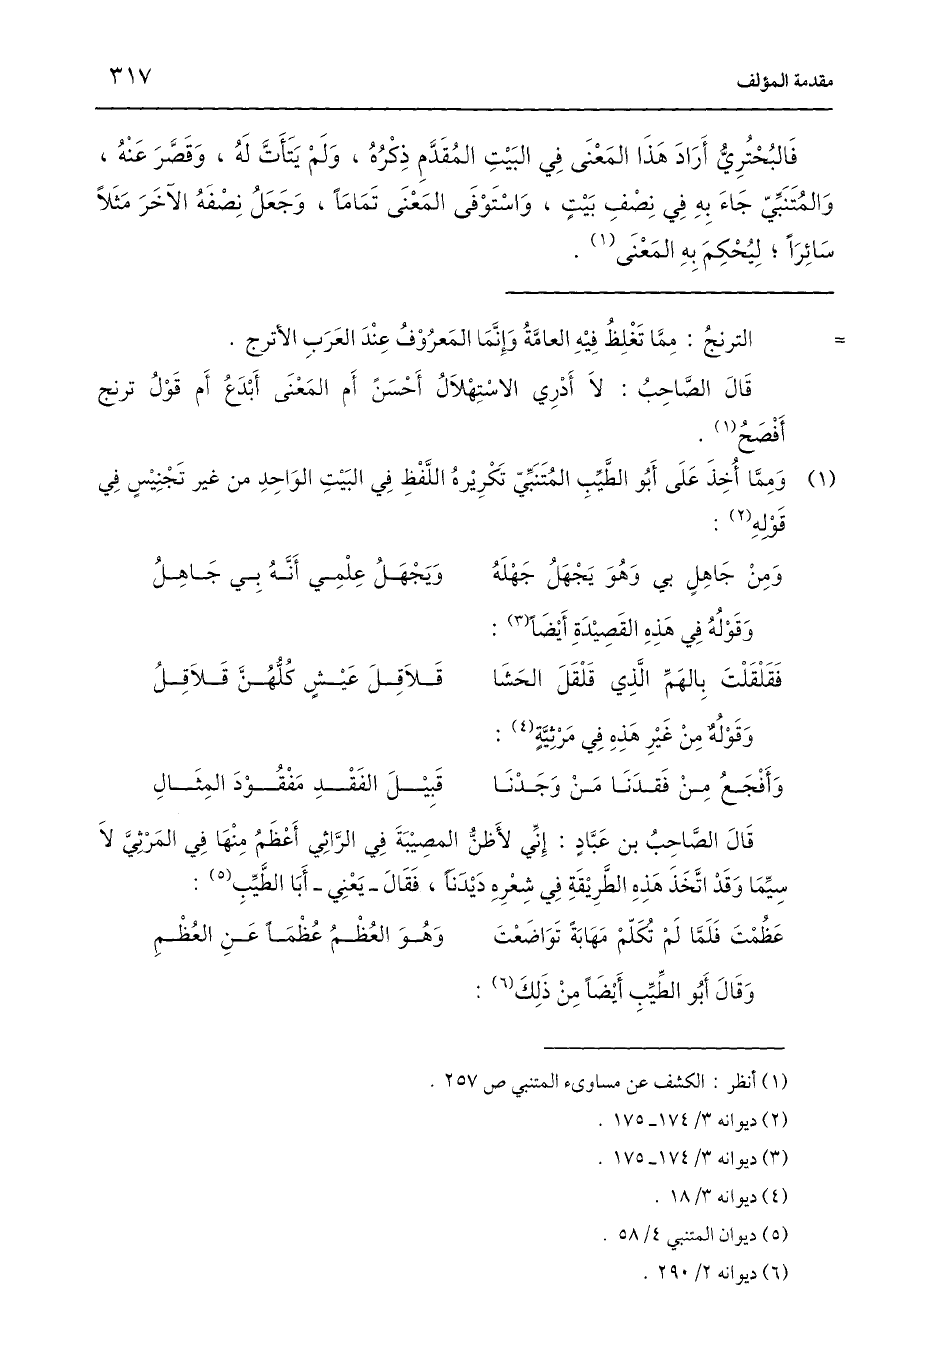 مقدمة المؤلف ٣١٧
فَالبُحْتُرِيُّ أَرَادَ هَذَا المَعْنَى فِي البَيْتِ المُقَدَّمِ ذِكْرُهُ ، وَلَمْ يَتَأَتَّ لَهُ ، وَقَصَّرَ عَنْهُ ،
وَالمُتَنَبِّيّ جَاءَ بِهِ فِي نِصْفِ بَيْتٍ ، وَاسْتَوْفَى المَعْنَى تَمَاماً ، وَجَعَلُ نِصْفَهُ الآخَرَ مَثَلاً
سَائِرَاً ؛ لِيُحْكِمَ بِهِ المَعْنَى(١) .
= الترنجُ : مِمَّا تَغْلِطُ فِيْهِ العَامَّةُ وَإِنَّمَا المَعرُوْفُ عِنْدَ العَرَبِ الأترج .
قَالَ الصَّاحِبُ : لاَ أَدْرِي الاسْتِهْلاَلُ أَحْسَنً أم المَعْنَى أَبْدَعُ أم قَوْلُ ترنج
أَفْصَحُ(١) .
(١) وَمِمَّا أُخِذَ عَلَى أَبُو الطَّيِّبِ المُتَنَبِّيّ تَكْرِيْرهُ اللَّفْظِ فِي البَيْتِ الوَاحِدِ من غير تَجْنِيْسٍ فِي
قَوْلِهِ(٢) :
وَمِنْ جَاهِلٍ بي وَهُوَ يَجْهَلُ جَهْلَهُ وَيَجْهَلُ عِلْمِي أَنَّهُ بِي جَاهِلُ
وَقَوْلُهُ فِي هَذِهِ القَصِيْدَةِ أَيْضَاً(٣) :
فَقَلْقَلْتَ بِالهَمِّ الَّذِي قَلْقَلَ الحَشَا قَلاَقِلَ عَيْشٍ كُلُّهُنَّ قَلاَقِلُ
وَقَوْلُهُ مِنْ غَيْرِ هَذِهِ فِي مَرْثِيَّةٍ(٤) :
وَأَفْجَعُ مِنْ فَقدَنَا مَنْ وَجَدْنَا قَبِيْلَ الفَقْدِ مَفْقُوْدَ المِثَالِ
قَالَ الصَّاحِبُ بن عَبَّادٍ : إنِّي لأَظنُّ المصِيْبَةَ فِي الرَّاثِي أَعْظَمُ مِنْهَا فِي المَرْثِيَّ لاَ
سِيِّمَا وَقَدْ اتَّخَذَ هَذِهِ الطَّرِيْقَةِ فِي شِعْرِهِ دَيْدَنَاً ، فَقَالَ ـ يَعْنِي ـ أَبَا الطَّيِّبِ(٥) :
عَظُمْتَ فَلَمَّا لَمْ تُكَلّمْ مَهَابَةً تَوَاضَعْتَ وَهُوَ العُظْمُ عُظْمَاً عَنِ العُظْمِ
وَقَالَ أَبُو الطَّيِّبِ أَيْضَاً مِنْ ذَلِكَ(٦) :
(١) أنظر : الكشف عن مساوىء المتنبي ص ٢٥٧ .
(٢) ديوانه ٣/ ١٧٤ـ ١٧٥ .
(٣) ديوانه ٣/ ١٧٤ـ ١٧٥ .
(٤) ديوانه ٣/ ١٨ .
(٥) ديوان المتنبي ٤/ ٥٨ .
(٦) ديوانه ٢/ ٢٩٠ .